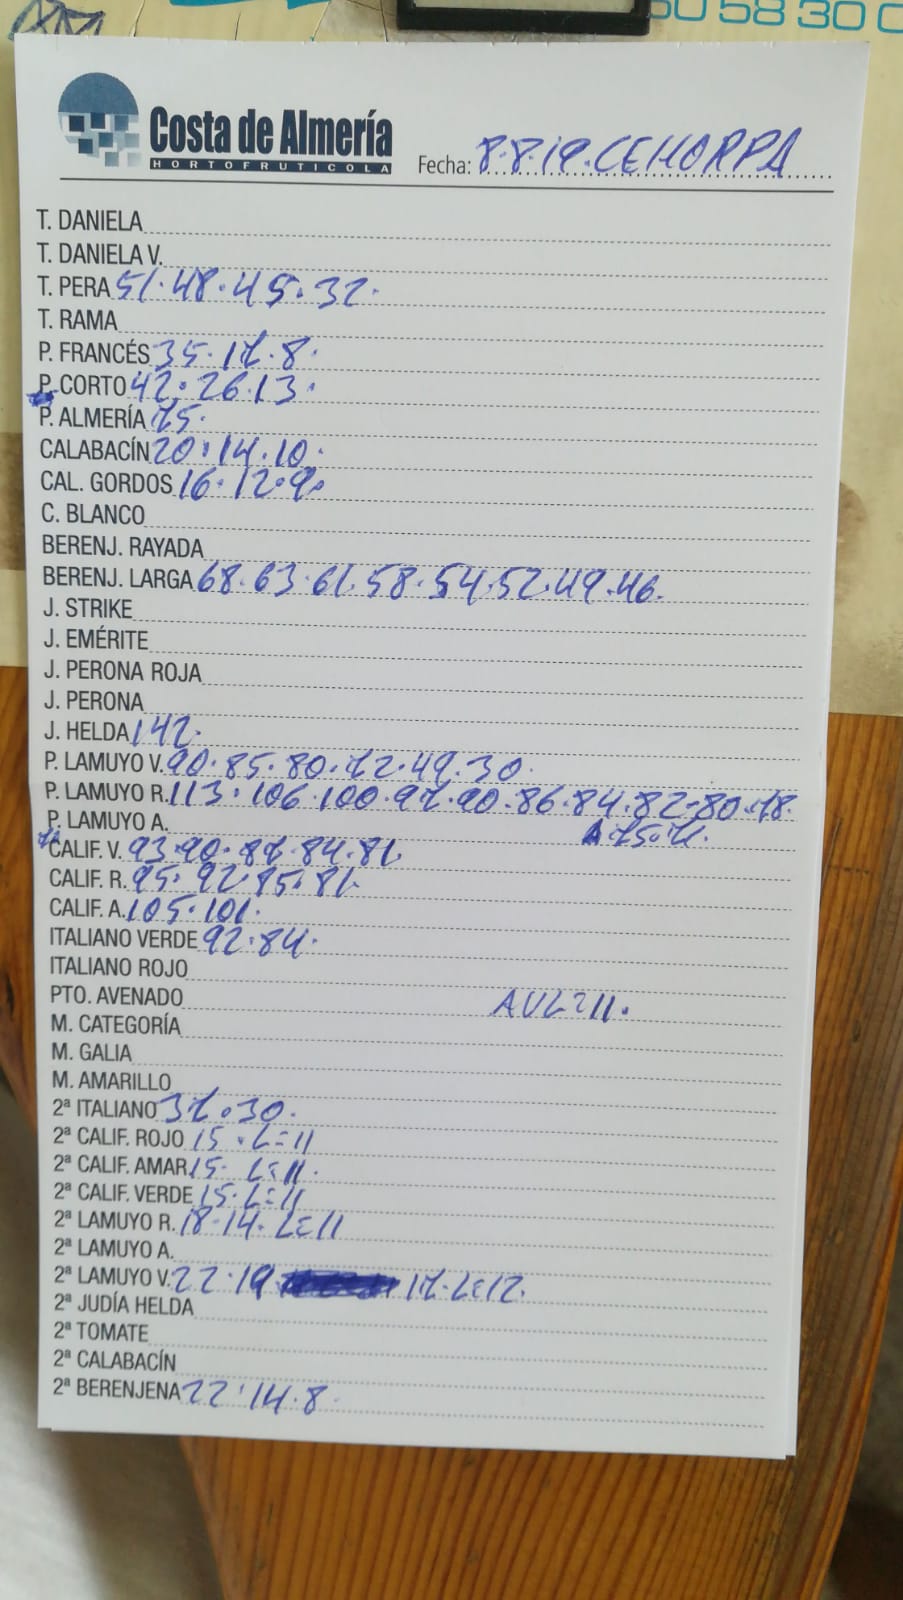 50 58 30 0
Costa de Almería
HORTOFRUTICOLA
Fecha: 8.8.19. CEHORPA
T. DANIELA
T. DANIELA V.
T. PERA 51.48.45.32.
T. RAMA
P. FRANCÉS 35.17.8.
P. CORTO 42.26.13.
P. ALMERÍA 75.
CALABACÍN 20.14.10.
CAL. GORDOS 16.12.9.
C. BLANCO
BERENJ. RAYADA
BERENJ. LARGA 68.63.61.58.54.52.49.46.
J. STRIKE
J. EMÉRITE
J. PERONA ROJA
J. PERONA
J. HELDA 142.
P. LAMUYO V. 90.85.80.72.49.30.
P. LAMUYO R. 113.106.100.97.90.86.84.82-80.78.
P. LAMUYO A.
75.71.
CALIF. V. 93.90.87.84.81.
CALIF. R. 95.92.85.81.
CALIF. A. 105.101.
ITALIANO VERDE 92.84.
ITALIANO ROJO
PTO. AVENADO AVL=11.
M. CATEGORÍA
M. GALIA
M. AMARILLO
2ª ITALIANO 37.30.
2ª CALIF. ROJO 15. L=11
2ª CALIF. AMAR 15. L=11.
2ª CALIF. VERDE 15. L=11
2ª LAMUYO R. 18.14. L=11
2ª LAMUYO A.
2ª LAMUYO V. 22.19 17. L=12.
2ª JUDÍA HELDA
2ª TOMATE
2ª CALABACÍN
2ª BERENJENA 22.14.8.